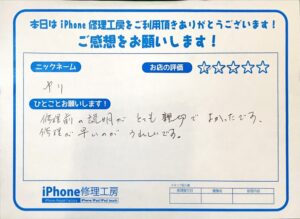 本日は iPhone 修理工房をご利用頂きありがとうございます！
ご感想をお願いします！
ニックネーム
お店の評価 ☆☆☆☆☆
ヤリ
ひとことお願いします！
修理前の説明が とても 親切で よかったです。
修理が早いのが うれしいです。
iPhone修理工房